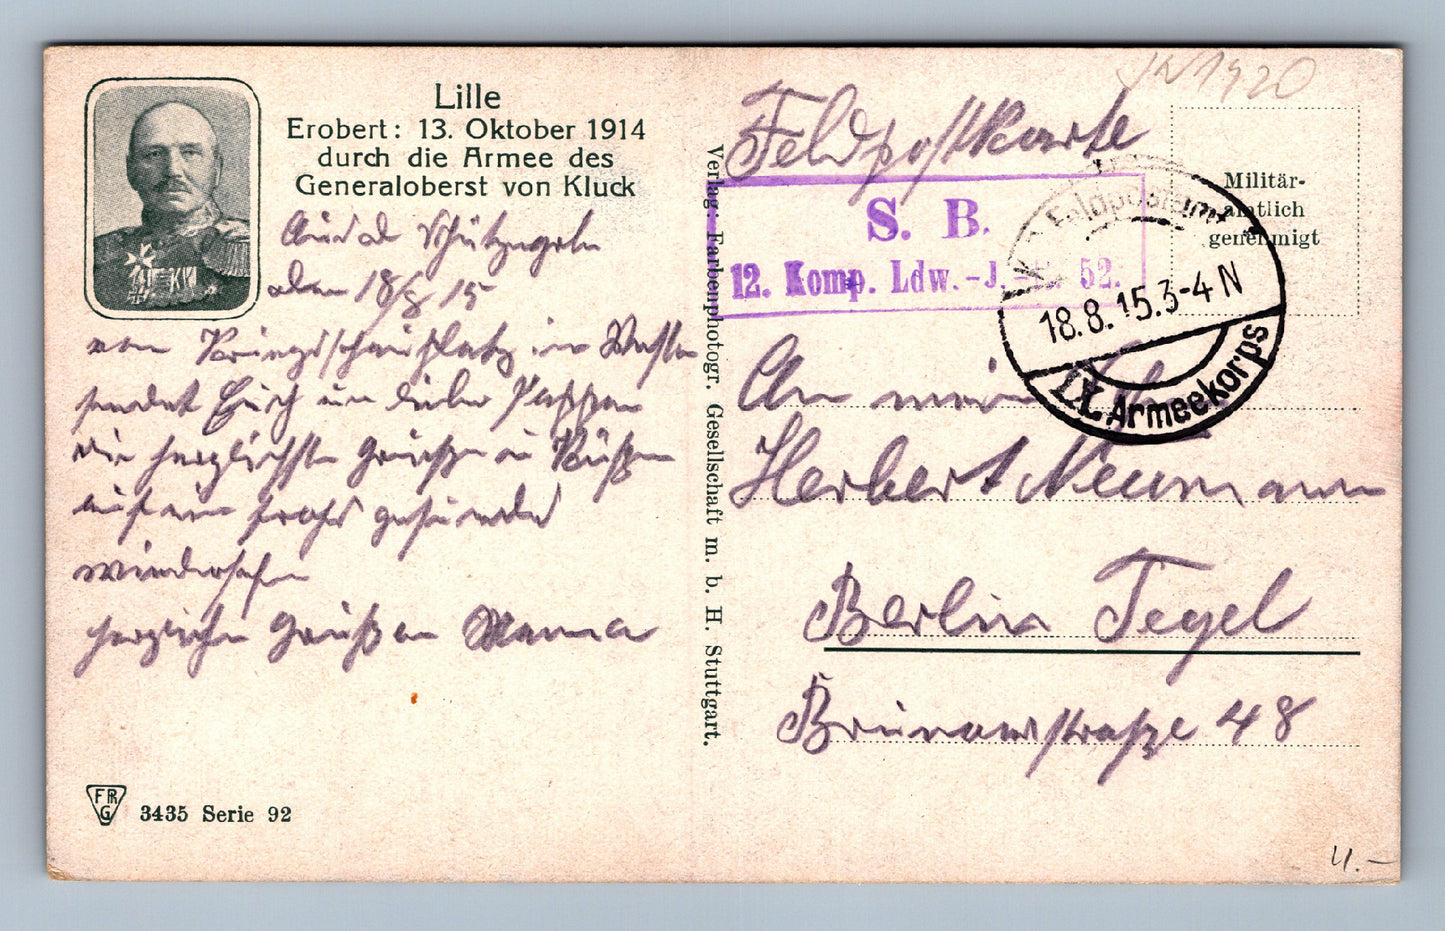 Lille
Erobert: 13. Oktober 1914
durch die Armee des
Generaloberst von Kluck
Schützengrab
den 18/8 15
vom Kriegsschauplatz im Westen
sendet Euch ein lieber Pappa
die herzlichsten Grüße u Küße
auf ein frohes gesundes
wiedersehen
herzliche Grüße an Mama
3435 Serie 92
FPRG
Verlag: Farbenphotogr. Gesellschaft m. b. H. Stuttgart.
1920
Feldpostkarte
S. B.
12. Komp. Ldw.-J. 52.
Militär-
amtlich
genehmigt
K. D. Feldpostexped.
18.8.15.3-4 N
IX. Armeekorps
An mein
Herbert Neumann
Berlin Tegel
Brunowstraße 48
4.-